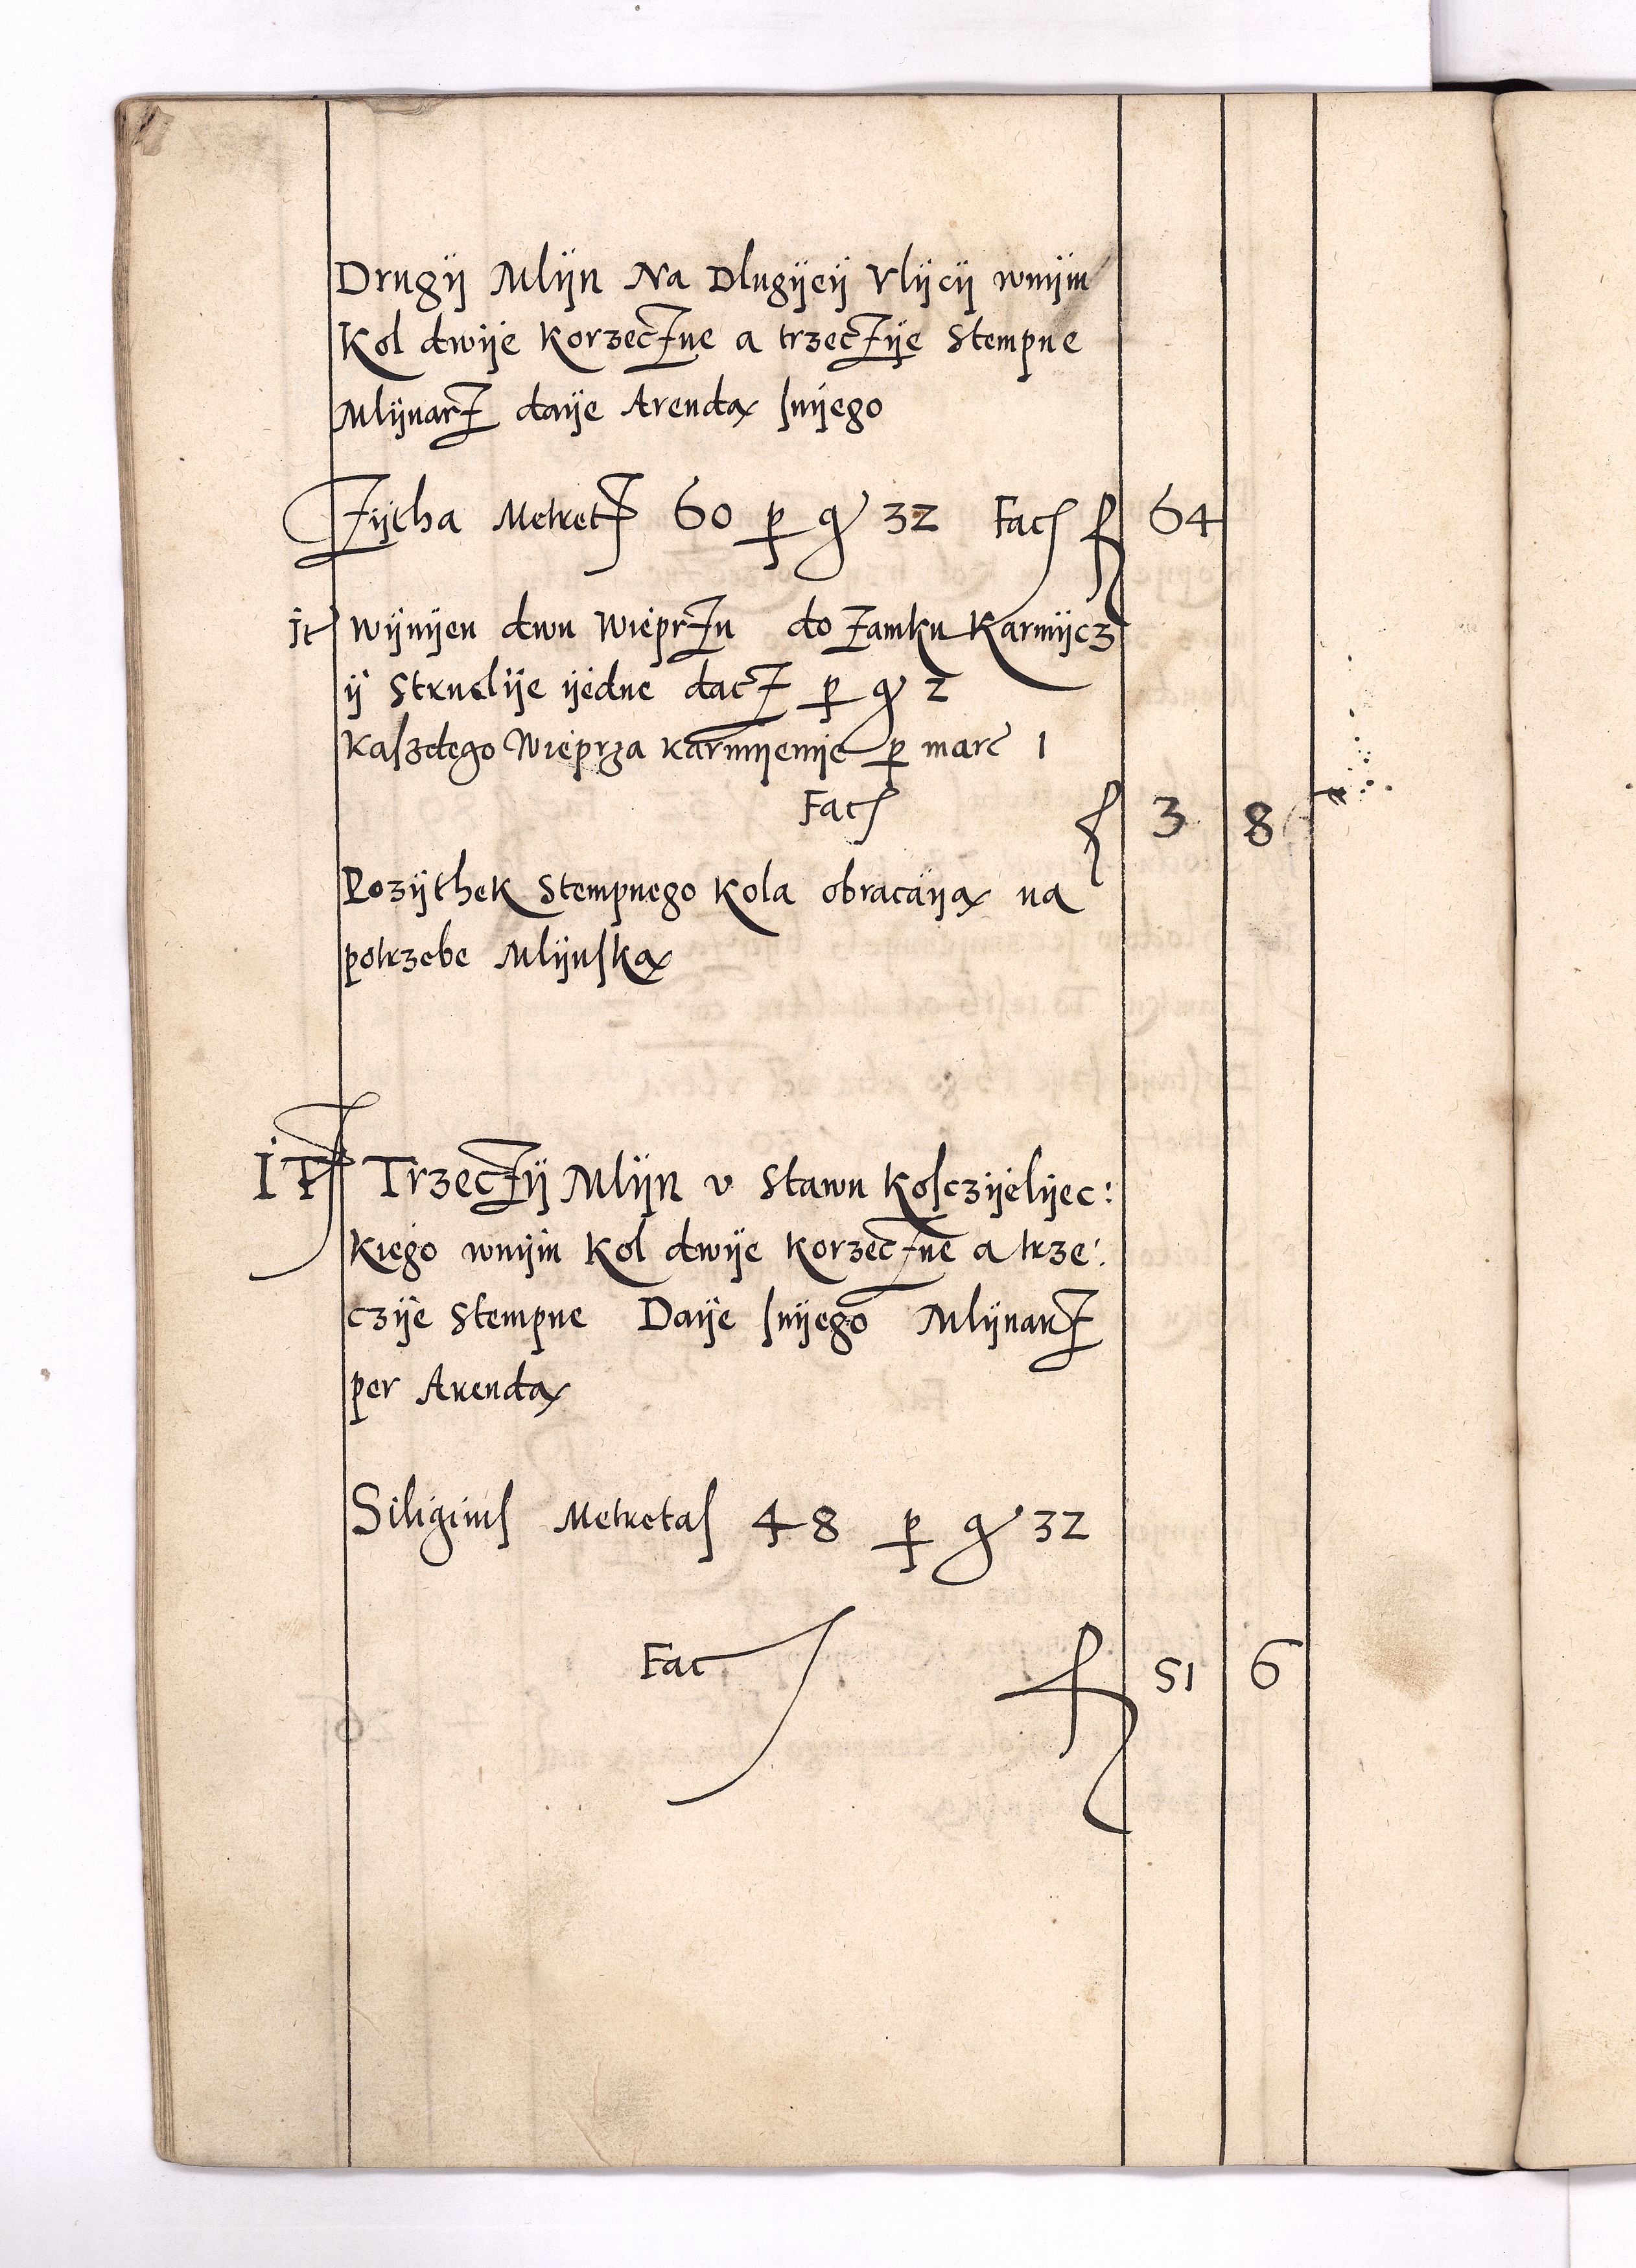 Drugij Mlijn Na Dlugijeij Vlijcij wnijm
Kol dwije Korzeczne a trzeczije Stempne
Mlijnarz daije Arendax snijego
Zijtha Metret 60 p gr 32 Fac fl 64
It wijnijen dwu Wieprzu do Zamku Karmijcz
ij Strudije ijedne dacz p gr 2
Kaszdego Wieprza karmijenije p marc 1
Fac fl 3 8
Pozijthek Stempnego Kola obracaijax na
potrzebe Mlijnskax
It Trzeczij Mlijn v Stawu Kosczijelijec:
kiego wnijm Kol dwije Korzeczne a trze:
czije Stempne Daije snijego Mlijnarz
per Arendax
Siliginis Metretas 48 p gr 32
Fac fl 51 6